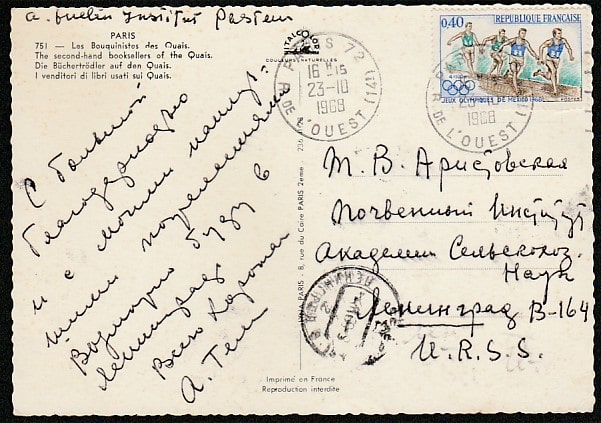 Institut Pasteur
PARIS
751 — Les Bouquinistes des Quais.
The second-hand booksellers of the Quais.
Die Büchertrödler auf den Quais.
I venditori di libri usati sui Quais.
ITALCOLOR
COULEURS NATURELLES
PARIS 72 (17)
16H15
23-10
1968
R DE L'OUEST
0,40 RÉPUBLIQUE FRANÇAISE
POSTES
JEUX OLYMPIQUES DE MEXICO 1968
PARIS
1968
R DE L'OUEST
С большой
благодарностью
и с моими
Возможно буду в
Ленинграде
Всего хорошего
А.
8, rue du Caire PARIS 2eme
Т. В. Аристовская
Почвенный Институт
Академии Сельскохоз.
Наук
Ленинград В-164
U.R.S.S.
ЛЕНИНГРАД
Imprimé en France
Reproduction interdite